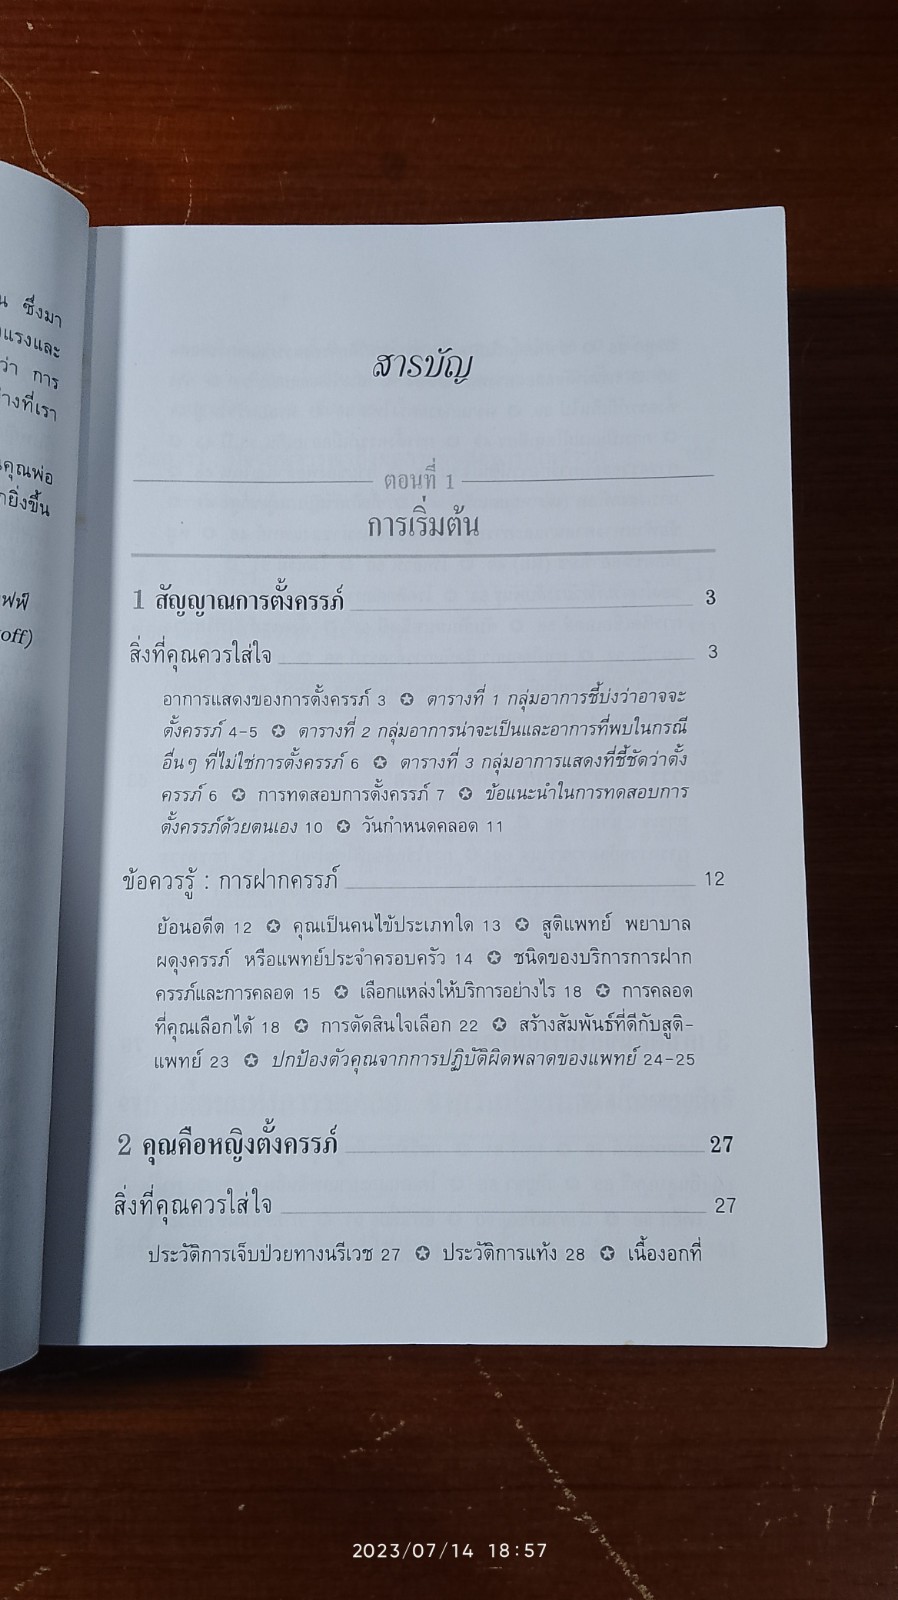 ซึ่งมา
แรงและ
ว่า การ
างที่เรา
คุณพ่อ
ยิ่งขึ้น
ฟฟ์
off)
สารบัญ
ตอนที่ 1
การเริ่มต้น
1 สัญญาณการตั้งครรภ์ 3
สิ่งที่คุณควรใส่ใจ 3
อาการแสดงของการตั้งครรภ์ 3 ✪ ตารางที่ 1 กลุ่มอาการชี้บ่งว่าอาจจะ
ตั้งครรภ์ 4-5 ✪ ตารางที่ 2 กลุ่มอาการน่าจะเป็นและอาการที่พบในกรณี
อื่นๆ ที่ไม่ใช่การตั้งครรภ์ 6 ✪ ตารางที่ 3 กลุ่มอาการแสดงที่ชี้ชัดว่าตั้ง
ครรภ์ 6 ✪ การทดสอบการตั้งครรภ์ 7 ✪ ข้อแนะนำในการทดสอบการ
ตั้งครรภ์ด้วยตนเอง 10 ✪ วันกำหนดคลอด 11
ข้อควรรู้ : การฝากครรภ์ 12
ย้อนอดีต 12 ✪ คุณเป็นคนไข้ประเภทใด 13 ✪ สูติแพทย์ พยาบาล
ผดุงครรภ์ หรือแพทย์ประจำครอบครัว 14 ✪ ชนิดของบริการการฝาก
ครรภ์และการคลอด 15 ✪ เลือกแหล่งให้บริการอย่างไร 18 ✪ การคลอด
ที่คุณเลือกได้ 18 ✪ การตัดสินใจเลือก 22 ✪ สร้างสัมพันธ์ที่ดีกับสูติ-
แพทย์ 23 ✪ ปกป้องตัวคุณจากการปฏิบัติผิดพลาดของแพทย์ 24-25
2 คุณคือหญิงตั้งครรภ์ 27
สิ่งที่คุณควรใส่ใจ 27
ประวัติการเจ็บป่วยทางนรีเวช 27 ✪ ประวัติการแท้ง 28 ✪ เนื้องอกที่
2023/07/14 18:57